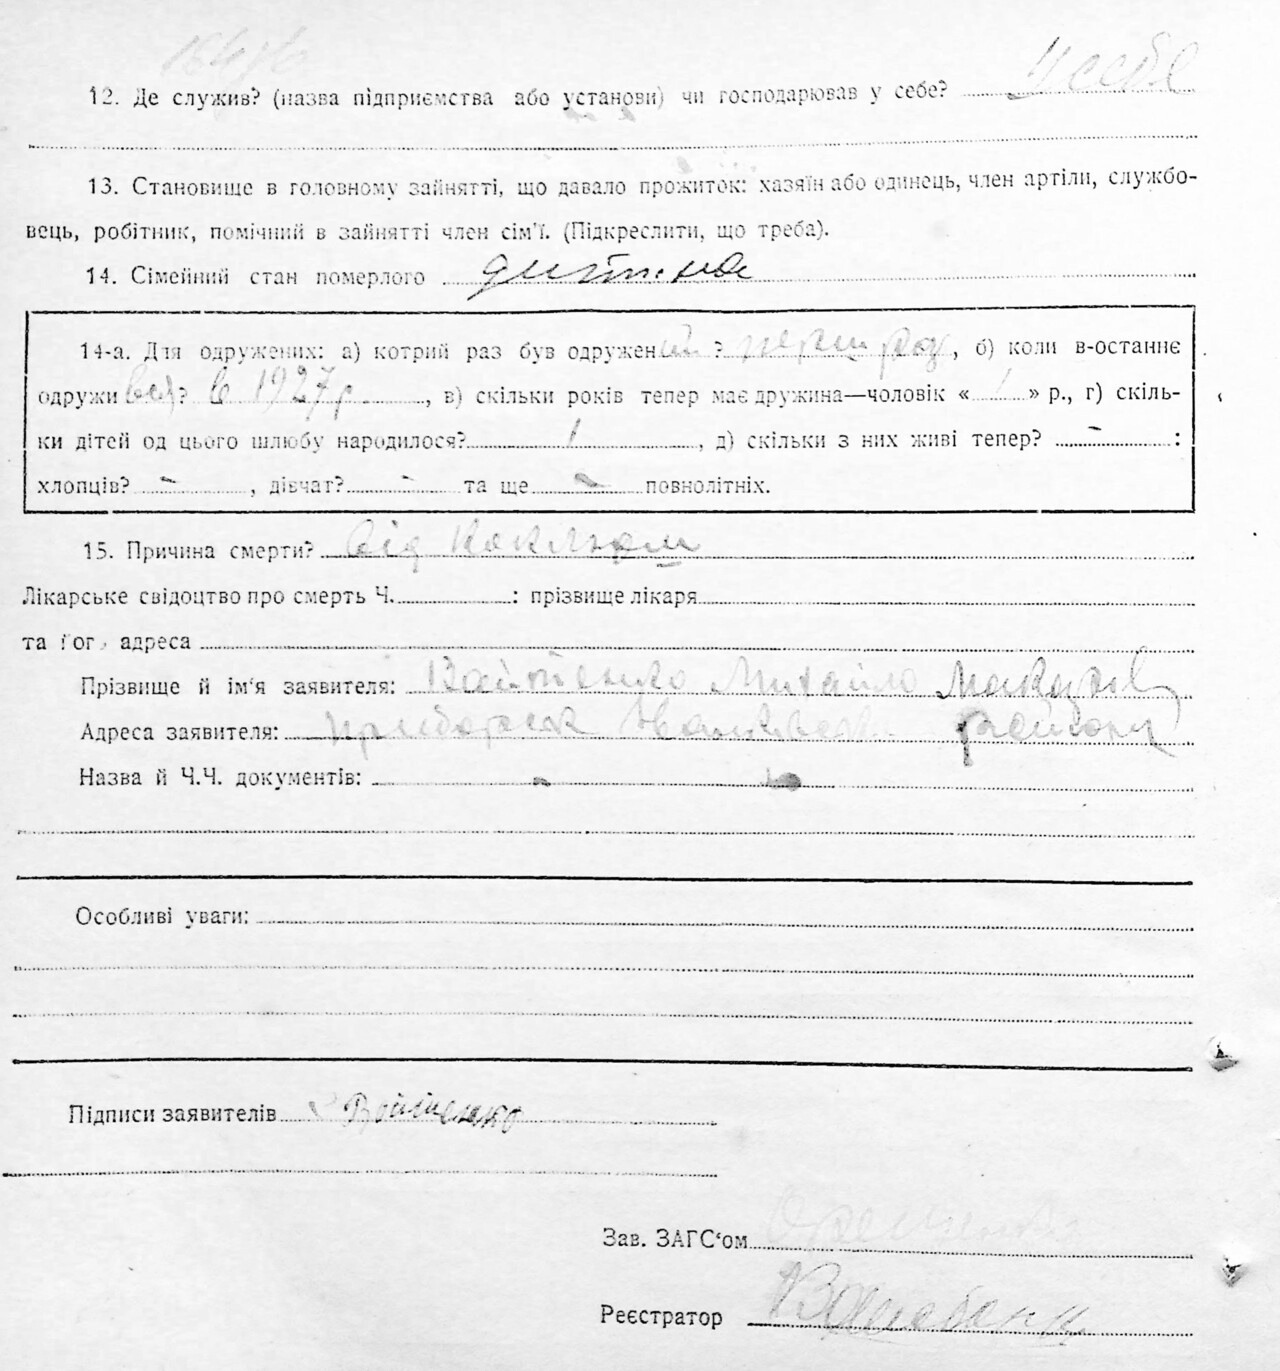 12. Де служив? (назва підприємства або установи) чи господарював у себе? У себе
13. Становище в головному зайнятті, що давало прожиток: хазяїн або одинець, член артіли, службо-
вець, робітник, помічний в зайнятті член сім'ї. (Підкреслити, що треба).
14. Сімейний стан померлого дитина
14-а. Для одружених: а) котрий раз був одружений? перший раз, б) коли в-останнє
одружився? в 1927 р., в) скільки років тепер має дружина—чоловік « / » р., г) скіль-
ки дітей од цього шлюбу народилося? 1, д) скільки з них живі тепер? - :
хлопців? -, дівчат? - та ще - повнолітніх.
15. Причина смерти? від коклюшу
Лікарське свідоцтво про смерть Ч. : прізвище лікаря
та його адреса
Прізвище й ім'я заявителя: Войтенко Михайло Макаров
Адреса заявителя: Прибірськ Іванківськ району
Назва й Ч.Ч. документів: -
Особливі уваги:
Підписи заявителів Войтенко
Зав. ЗАГС'ом
Реєстратор